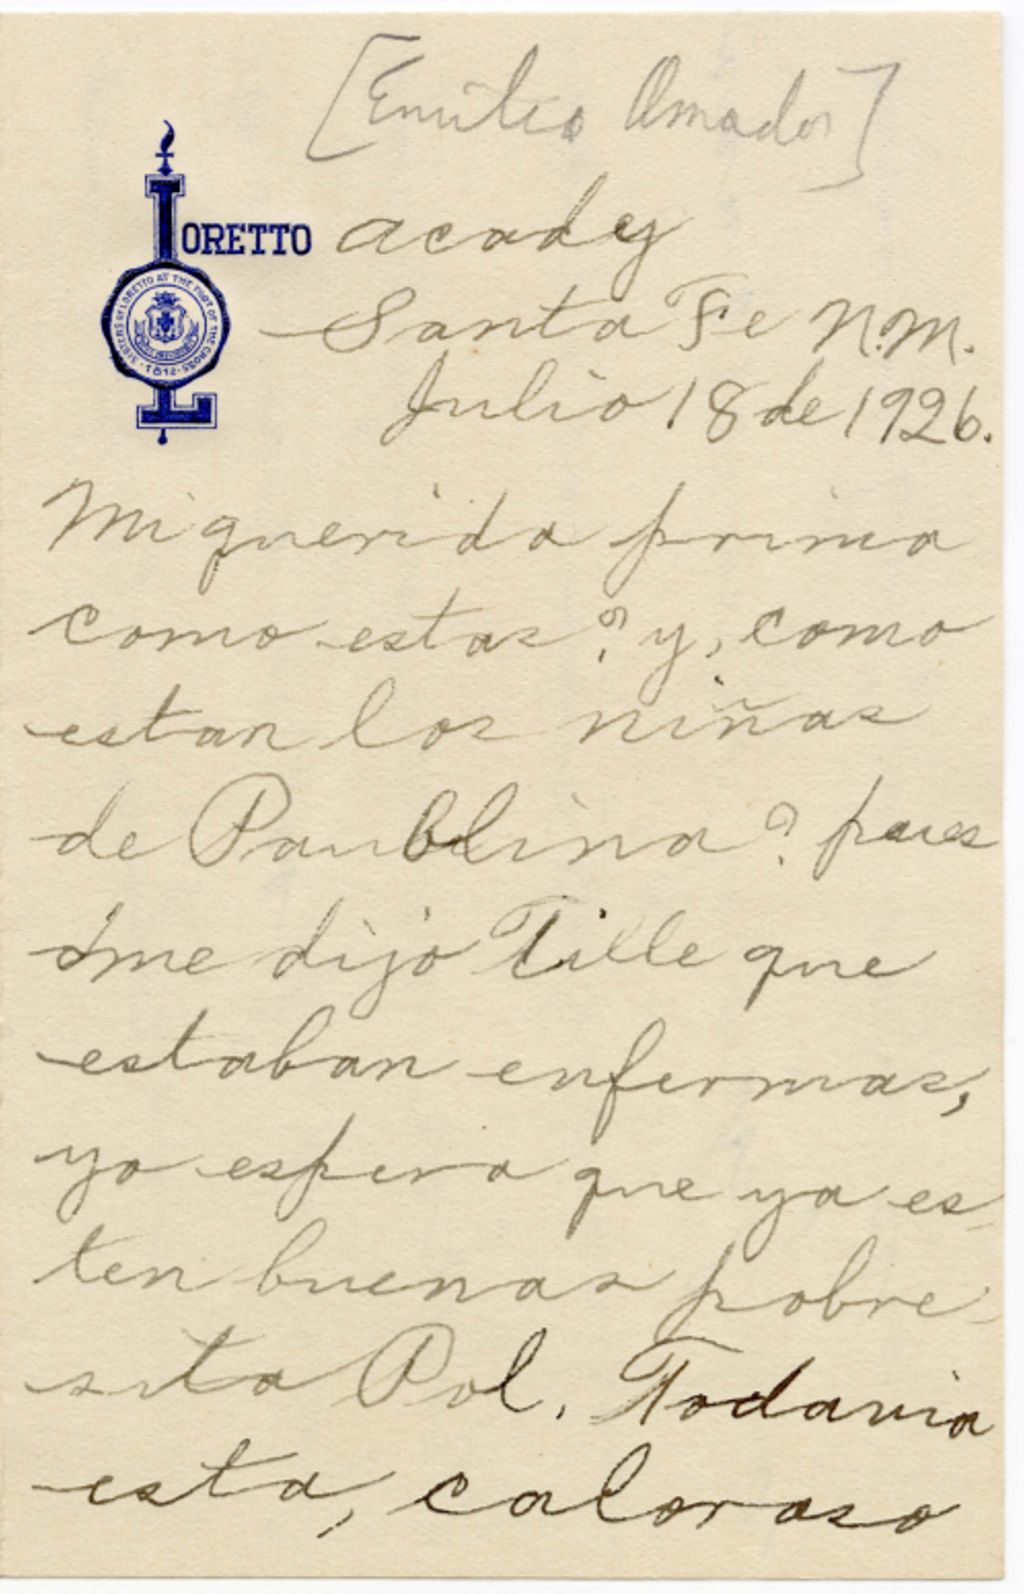 [Emilio Amador]
LORETTO acady
SISTERS OF LORETTO AT THE FOOT OF THE CROSS
· 1812 ·
Santa Fe N.M.
Julio 18 de 1926.
Mi querida prima
como estas? y, como
estan los niñas
de Paublina? pues
me dijo Tille que
estaban enfermas,
yo espero que ya es-
ten buenas pobre-
sita Pol. Todavia
esta, caloroso